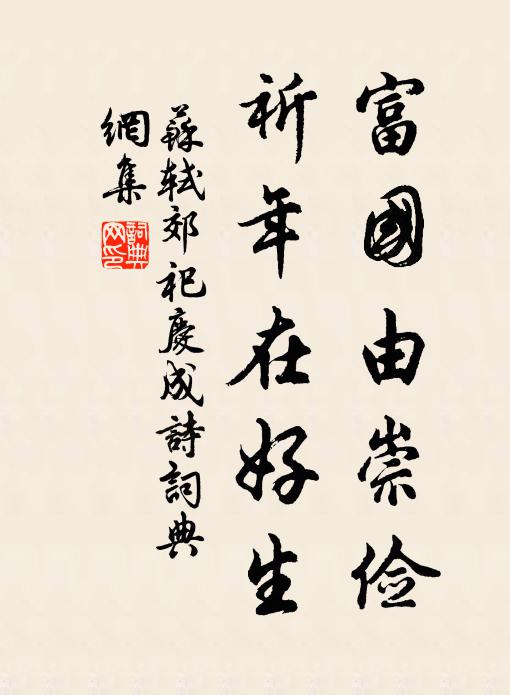 富國由崇儉
祈年在好生
蘇軾郊祀慶成詩詞典
網集
詞典
网印